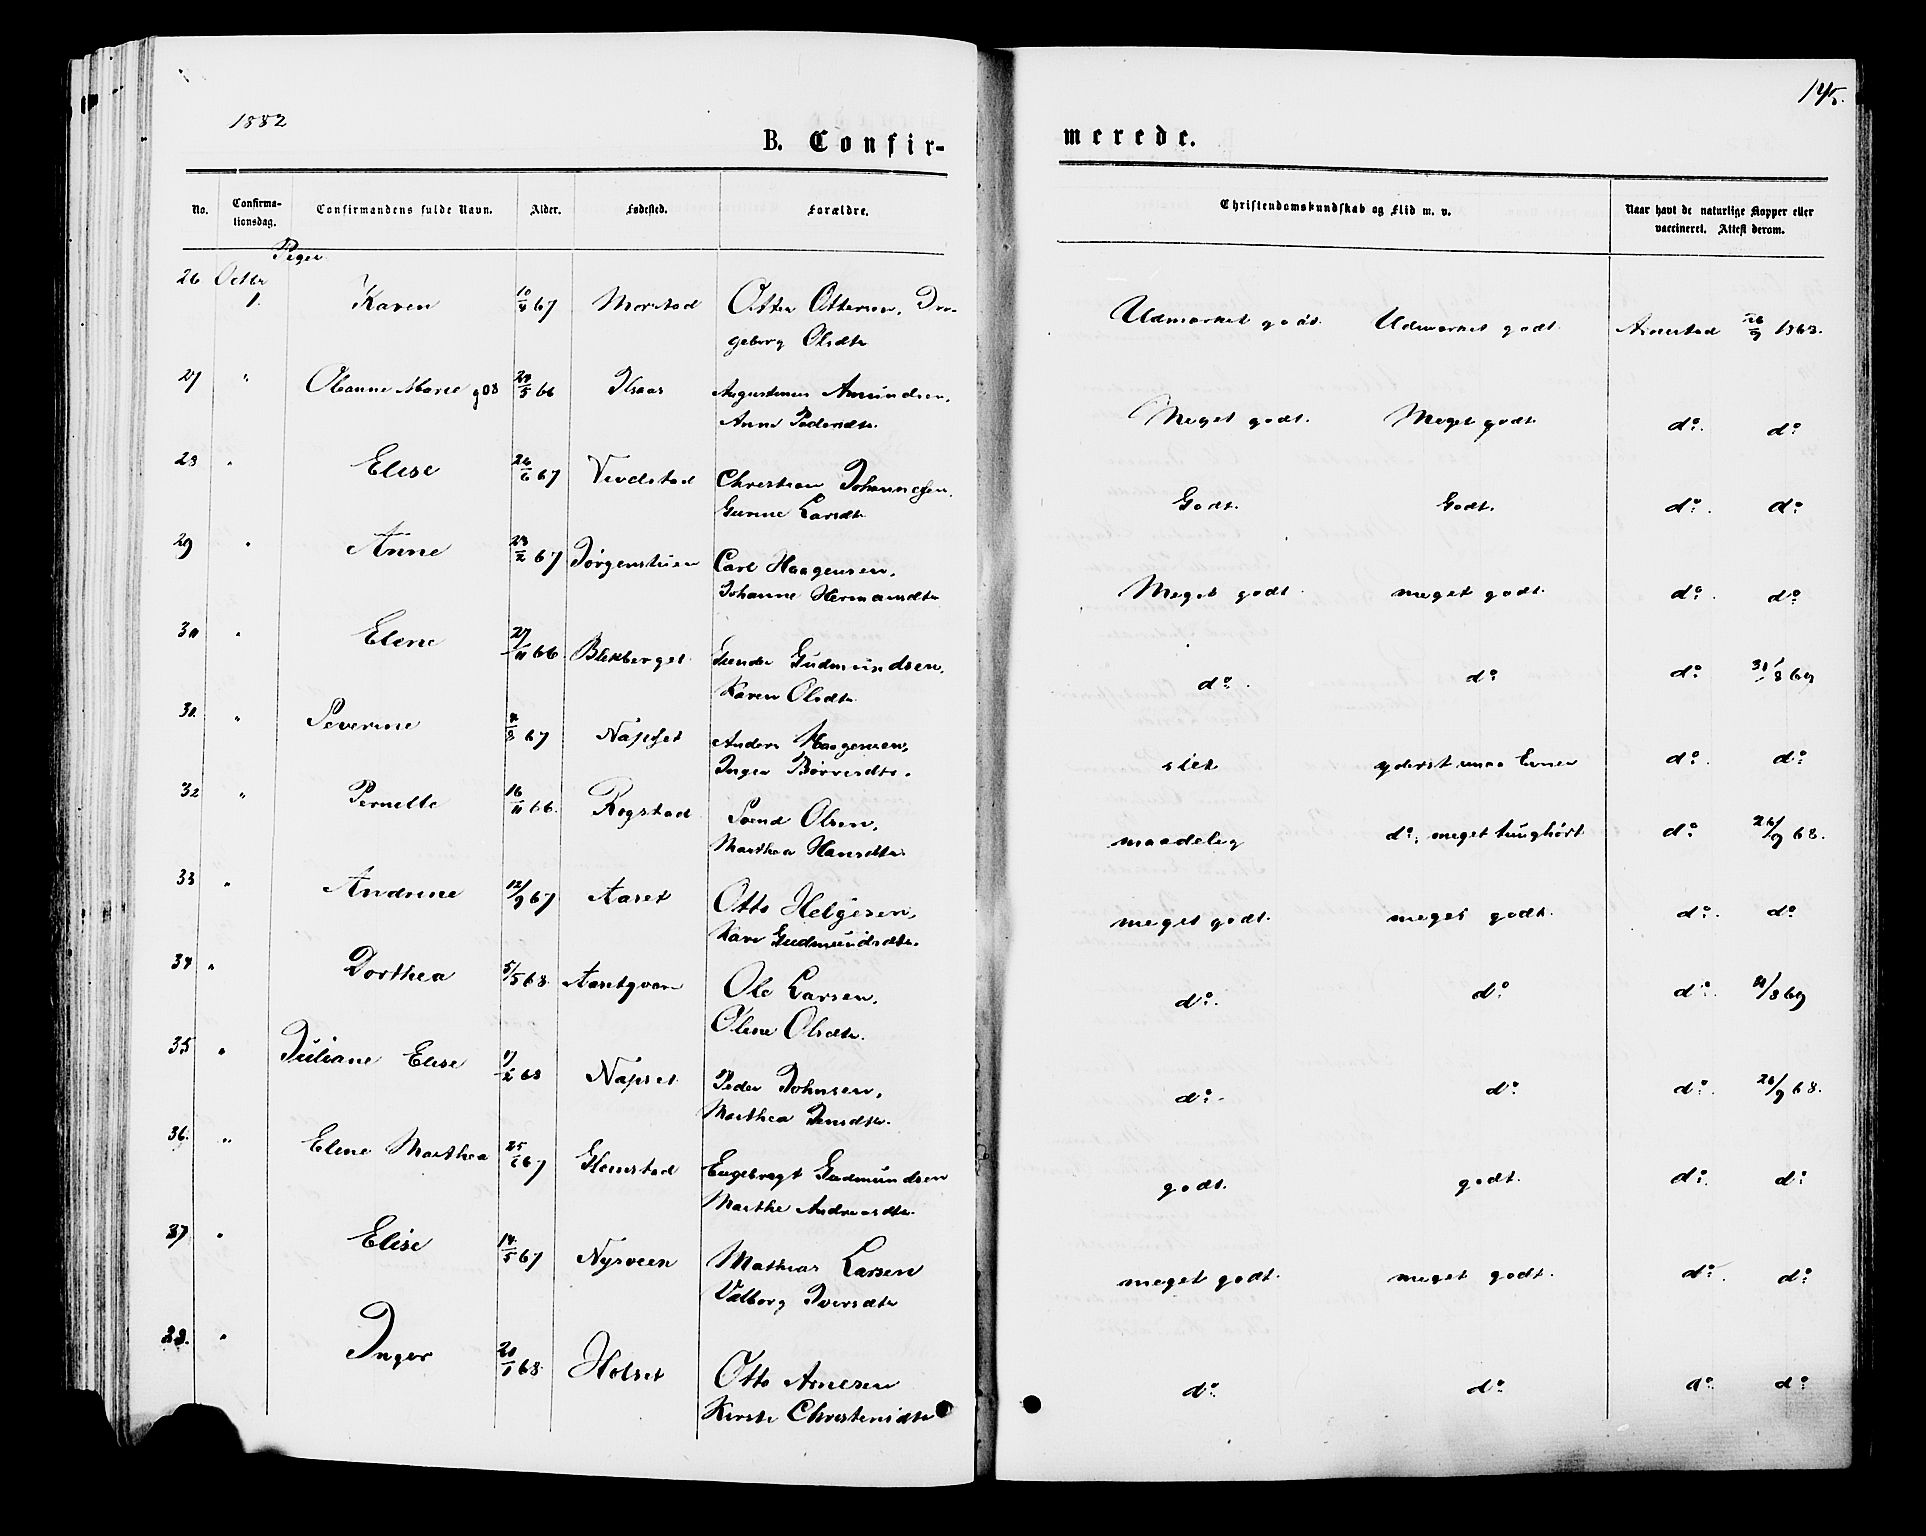 1882
B. Confir-
merede.
No.
Confirma-
tionsdag.
Confirmandens fulde Navn.
Alder.
Fødested.
Forældre.
Christendomskundskab og Flid m. v.
Naar havt de naturlige Kopper eller
vaccineret. Attest derom.
Piger
26 Octbr 1. Karen 10/4 67 Morstad Otter Ottersen, In-
geborg Olsdtr Udmærket godt. Udmærket godt. Arnestad 26/9 1868.
27 " Oleanne Marie /5 66 Augustinus Amundsen,
Anne Pedersdtr. Meget godt. Meget godt. do. do
28 " Elise 26/6 67 Christian Johannesen,
Gurine Larsdtr Godt. Godt. do. do
29 " Anne 28/2 67 Jørgenstuen Carl Haagensen,
Johanne Hermansdtr Meget godt. meget godt. do. do
30 " Elene 27/11 66 Blekberget Gunder Gudmundsen,
Karen Olsdtr. do. do do 31/8 69
31. " Severine /8 67 Napset Anders Haagensen,
Inger Børresdtr. slet yderst smaa Evner do. do
32 " Pernelle 16/11 66. Rogstad Svend Olsen,
Marthea Hansdtr. maadelig do, meget tunghørt do 26/9 68.
33 " Andrine 12/9 67 Aaset Otto Helgesen,
Kari Gudmundsdtr. meget godt. meget godt. do. do
34 " Dorthea 5/5 68 Ole Larsen,
Oline Olsdtr. do. do do. /8 69
35 " Juliane Elise /2 68 Napset Peder Johnsen,
Marthea Jensdtr. do. do do. 26/9 68.
36. " Elene Marthea 25/6 67 Glemstad Engebregt Gudmundsen
Marthe Andreasdtr. godt. godt. do. do
37 " Elise 14/5 67 Nysveen Mathias Larsen
Valborg Iversdtr meget godt. meget godt. do. do
38. " Inger 20/1 68 Holset Otto Arnesen
Kirsti Christensdtr do. do do. do